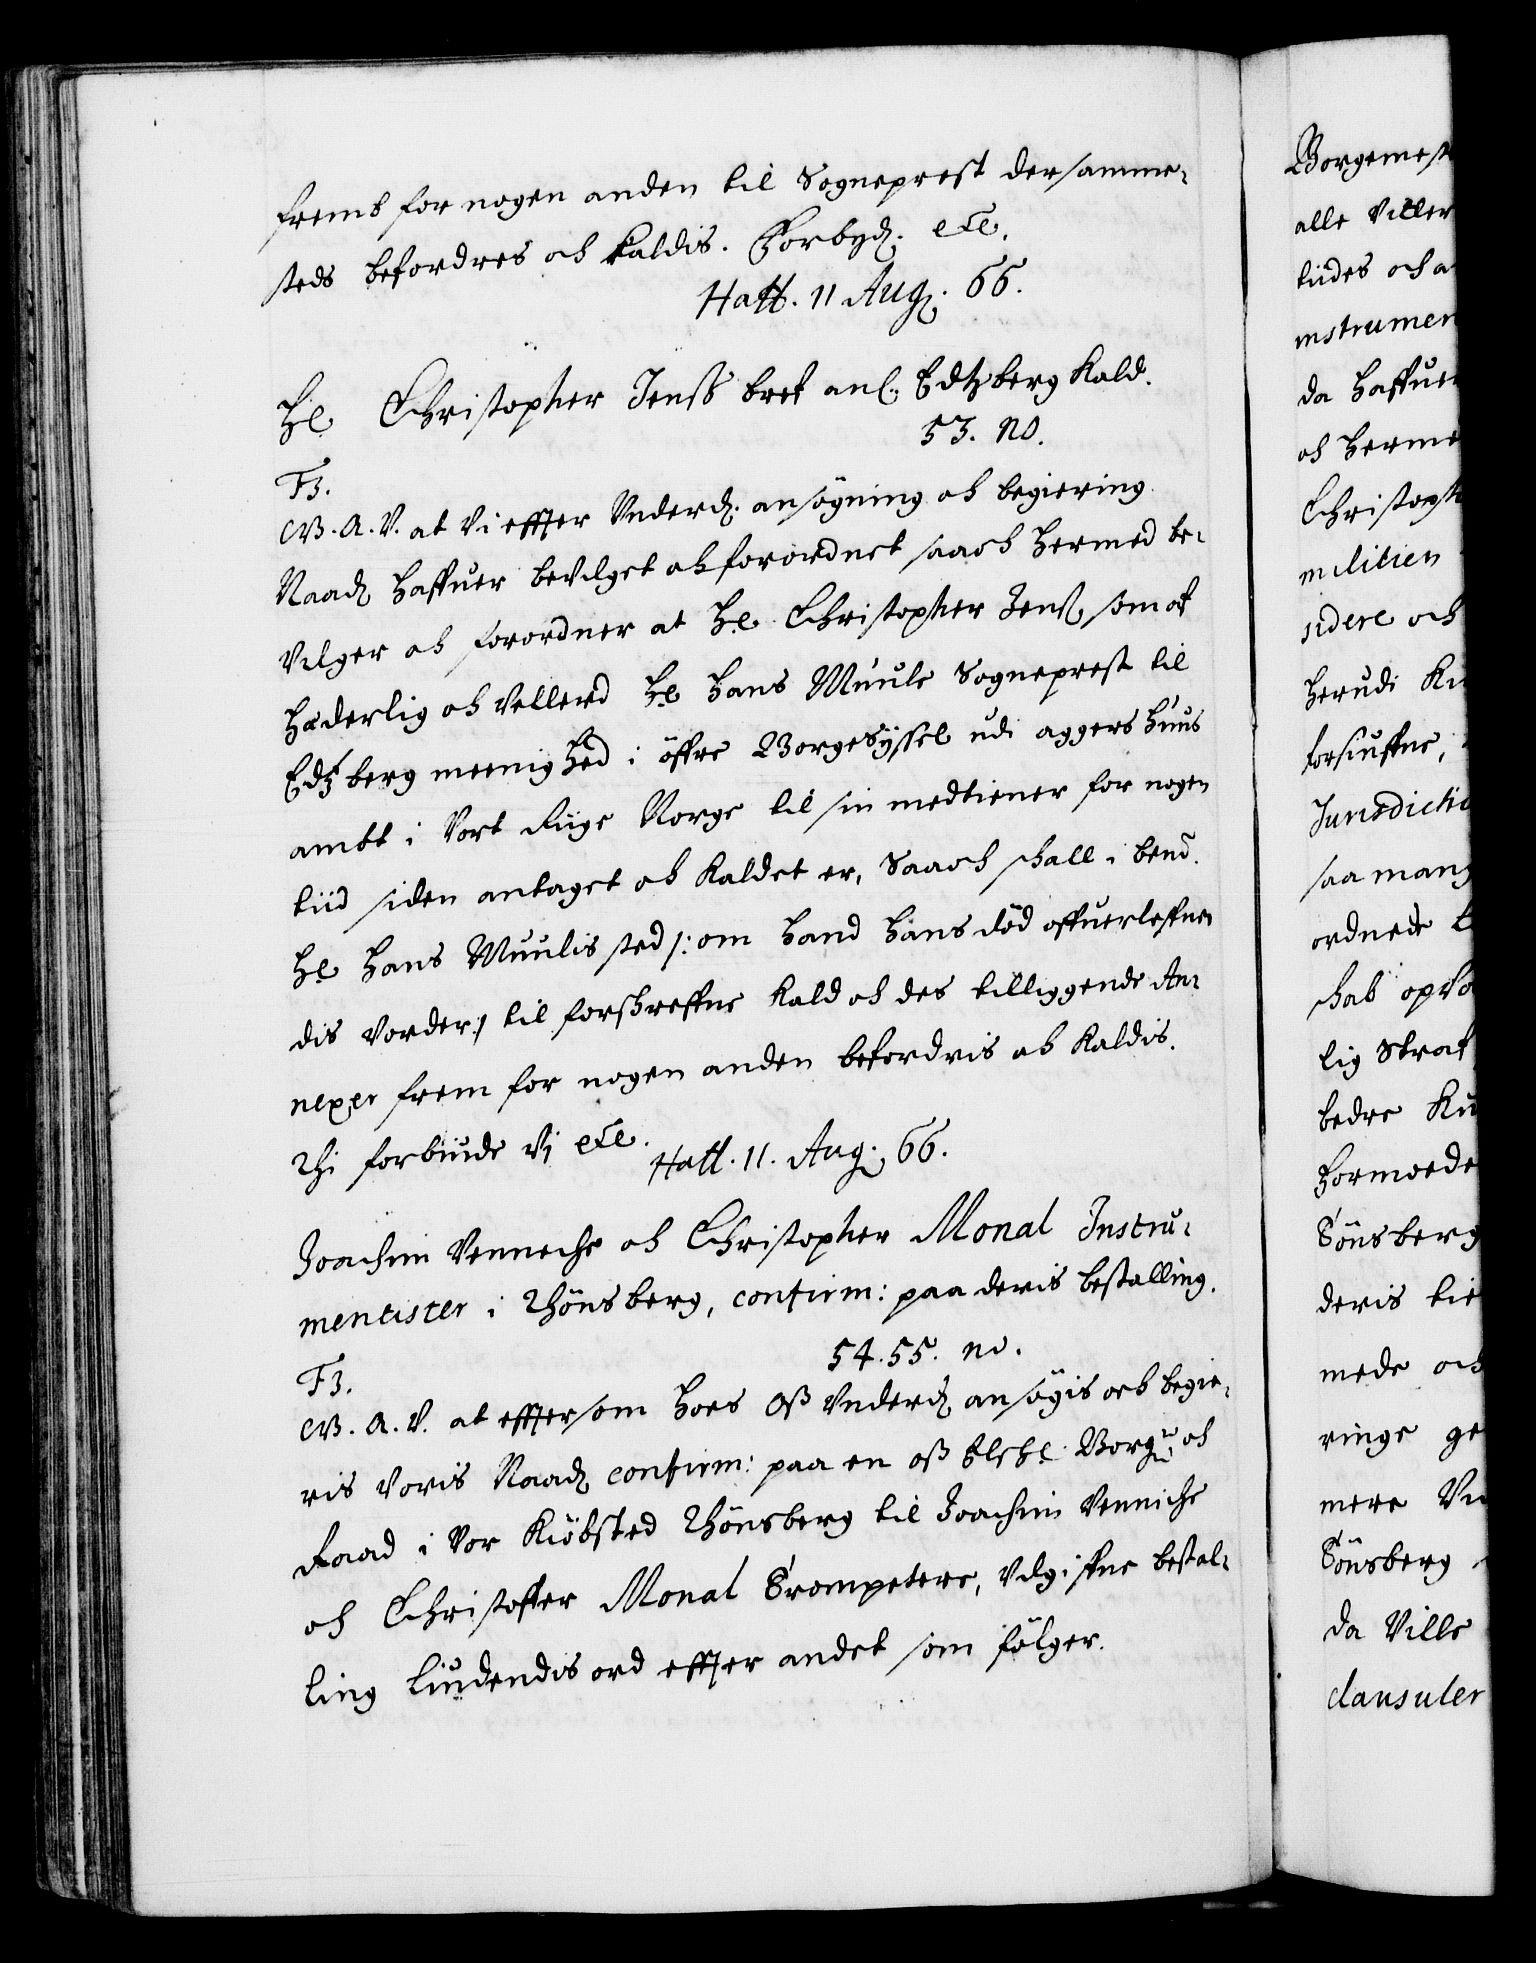 fremb for nogen anden til Sogneprest dersamme-
steds befordres och kaldis. Forbyd. etc.
Haff. 11 Aug. 66.
Hr Christopher Jenss bref anl. Edtzberg Kald.
53. no.
F3.
G. A. V. at Vi effter Underd. ansögning och begiering
Naad haffuer bevilget och forordnet saa och hermed be-
vilger och forordner at Hr. Christopher Jenss, som af
Hæderlig och Vellerd Hr Hans Muule Sogneprest til
Edtzberg meenighed i öffre Borgesyssel udi aggers huus
ambt i Vort Rige Norge til sin medtiener for nogen
tiid siden antaget och kaldet er, Saa och skall i bend.
Hr Hans Muulis sted /: om hand hans död offuerleffuen
dis vorder :/ til forschreffne kald och des tilliggende An-
nexer frem for nogen anden befordris och kaldis.
Thi forbiude Vi etc.
Haff. 11. Aug. 66.
Joachim Venneche och Christopher Monal Instru-
mentister i Thönsberg, confirm: paa deris bestalling.
54. 55. no.
F3.
G. A. V. at effter som hoes Oss Underd ansögis och begie-
ris Voris Naad confirm: paa en oss Elskl. Borgm. och
Raad i Vor Kiöbsted Thönsberg til Joachim Venniche
och Christoffer Monal Trompetere, Udgiffne bestal-
ling liudendis ord effter andet som fölger.
Borgemest
alle Viller
tiides och a
instrumen
da haffuer
och herme
Christoph
militien
sidere och
herudi Ku
forsiuffne,
Jurisdictio
saa mang
ordnede
schab opva
lig Straf
bedre Ku
formoede
Tönsberg
deris tie
mede och
ringe ge
mere Vn
Tönsberg
da Ville
clausuler